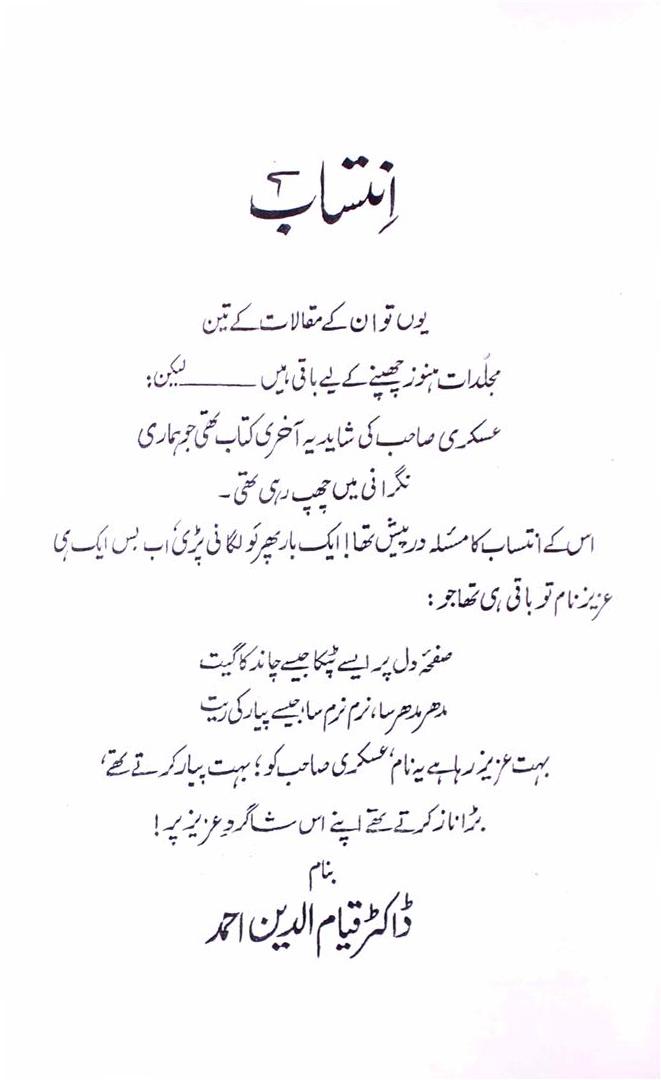 اِنتساب
یوں تو ان کے مقالات کے تین
مجلّدات ہنوز چھپنے کے لیے باقی ہیں ــــــــ لیکن:
عسکری صاحب کی شاید یہ آخری کتاب تھی جو ہماری
نگرانی میں چھپ رہی تھی۔
اس کے انتساب کا مسئلہ درپیش تھا! ایک بار پھر لَو لگانی پڑی، اب بس ایک ہی
عزیز نام تو باقی ہی تھا جو:
صفحۂ دل پر ایسے ٹپکا جیسے چاند کا گیت
مدھر مدھر سا، نرم نرم سا؛ جیسے پیار کی ریت
بہت عزیز رہا ہے یہ نام، عسکری صاحب کو؛ بہت پیار کرتے تھے،
بڑا ناز کرتے تھے اپنے اس شاگردِ عزیز پر!
بنام
ڈاکٹر قیام الدین احمد